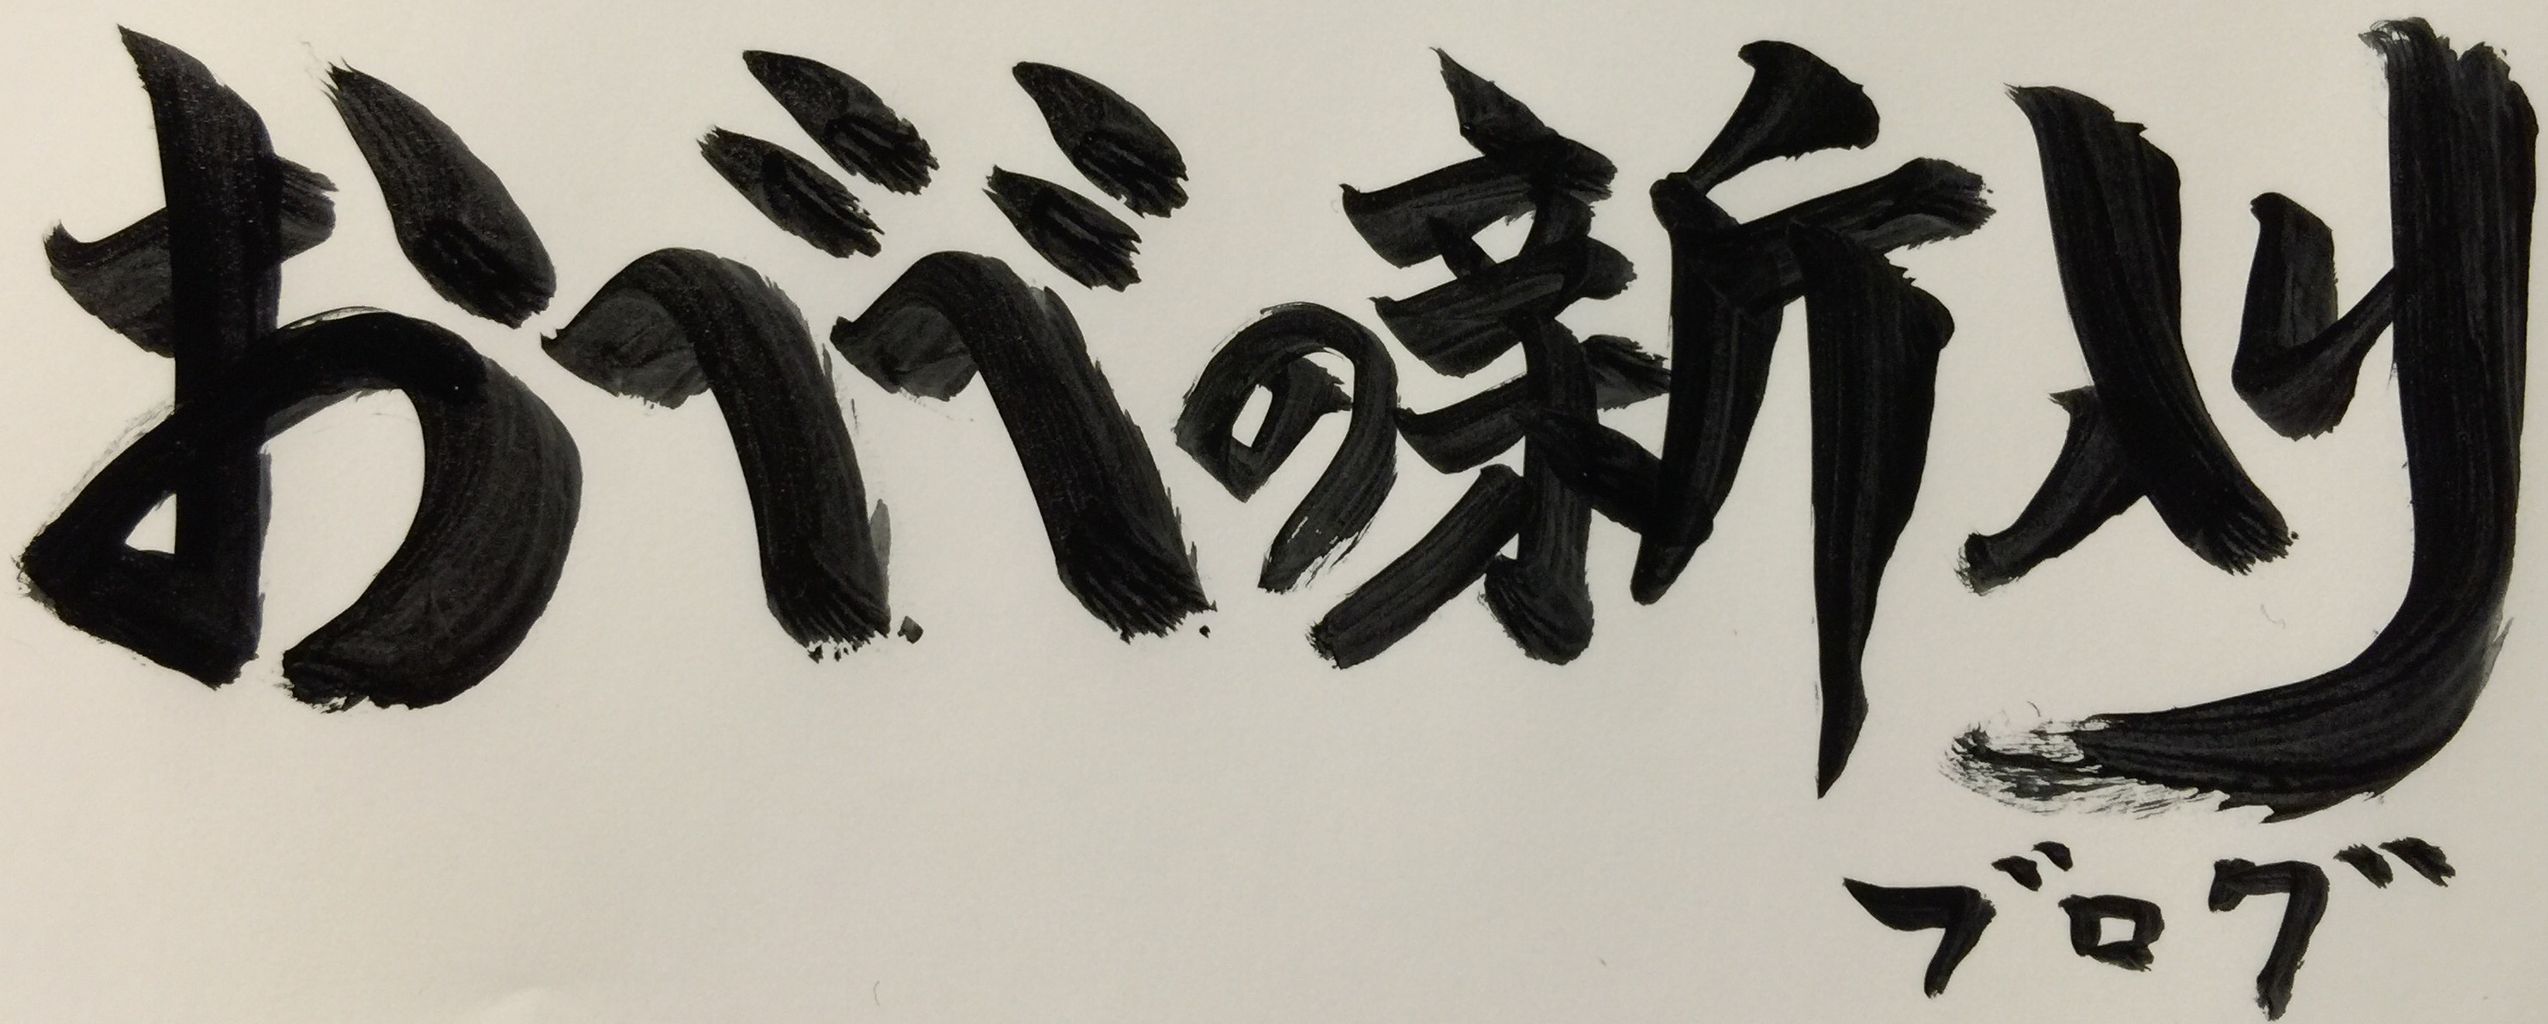 おべべの新刈
ブログ